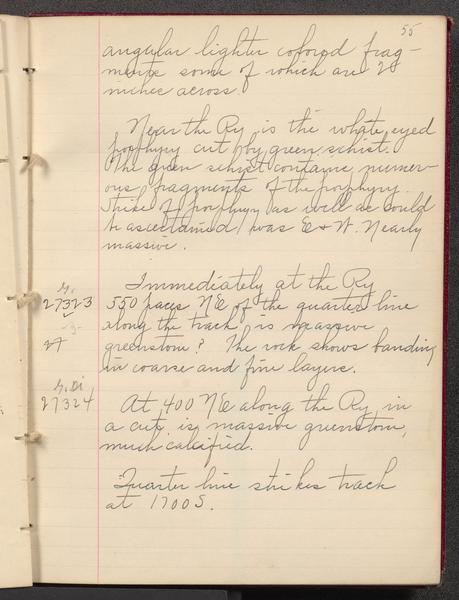 55
angular lighter colored frag-
ments some of which are 20
inches across.
Near the Ry is the white eyed
porphyry cut by green schist.
The green schist contains numer-
ous fragments of the porphyry.
Strike of porphyry as well as could
be ascertained was E & W. Nearly
massive.
Immediately at the Ry
27323 550 paces NE of the quarter line
along the track is massive
greenstone? The rock shows banding
in coarse and fine layers.
27324 At 400 NE along the Ry in
a cut is massive greenstone,
much calcified.
Quarter line strikes track
at 1700 S.